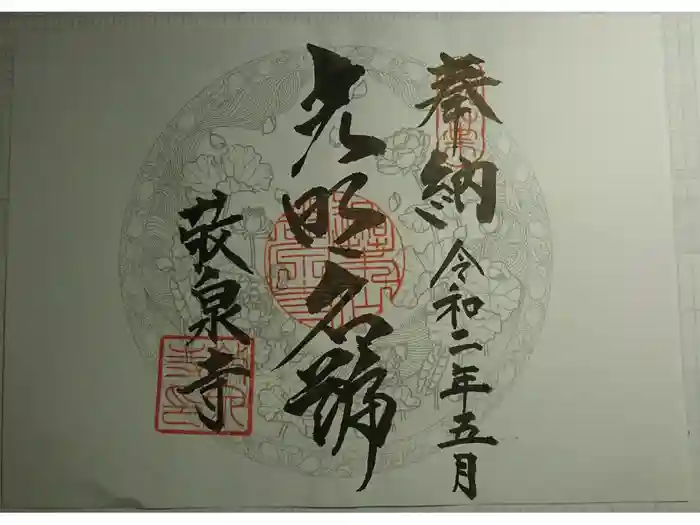 奉納
令和二年五月
光明名號
敬泉寺